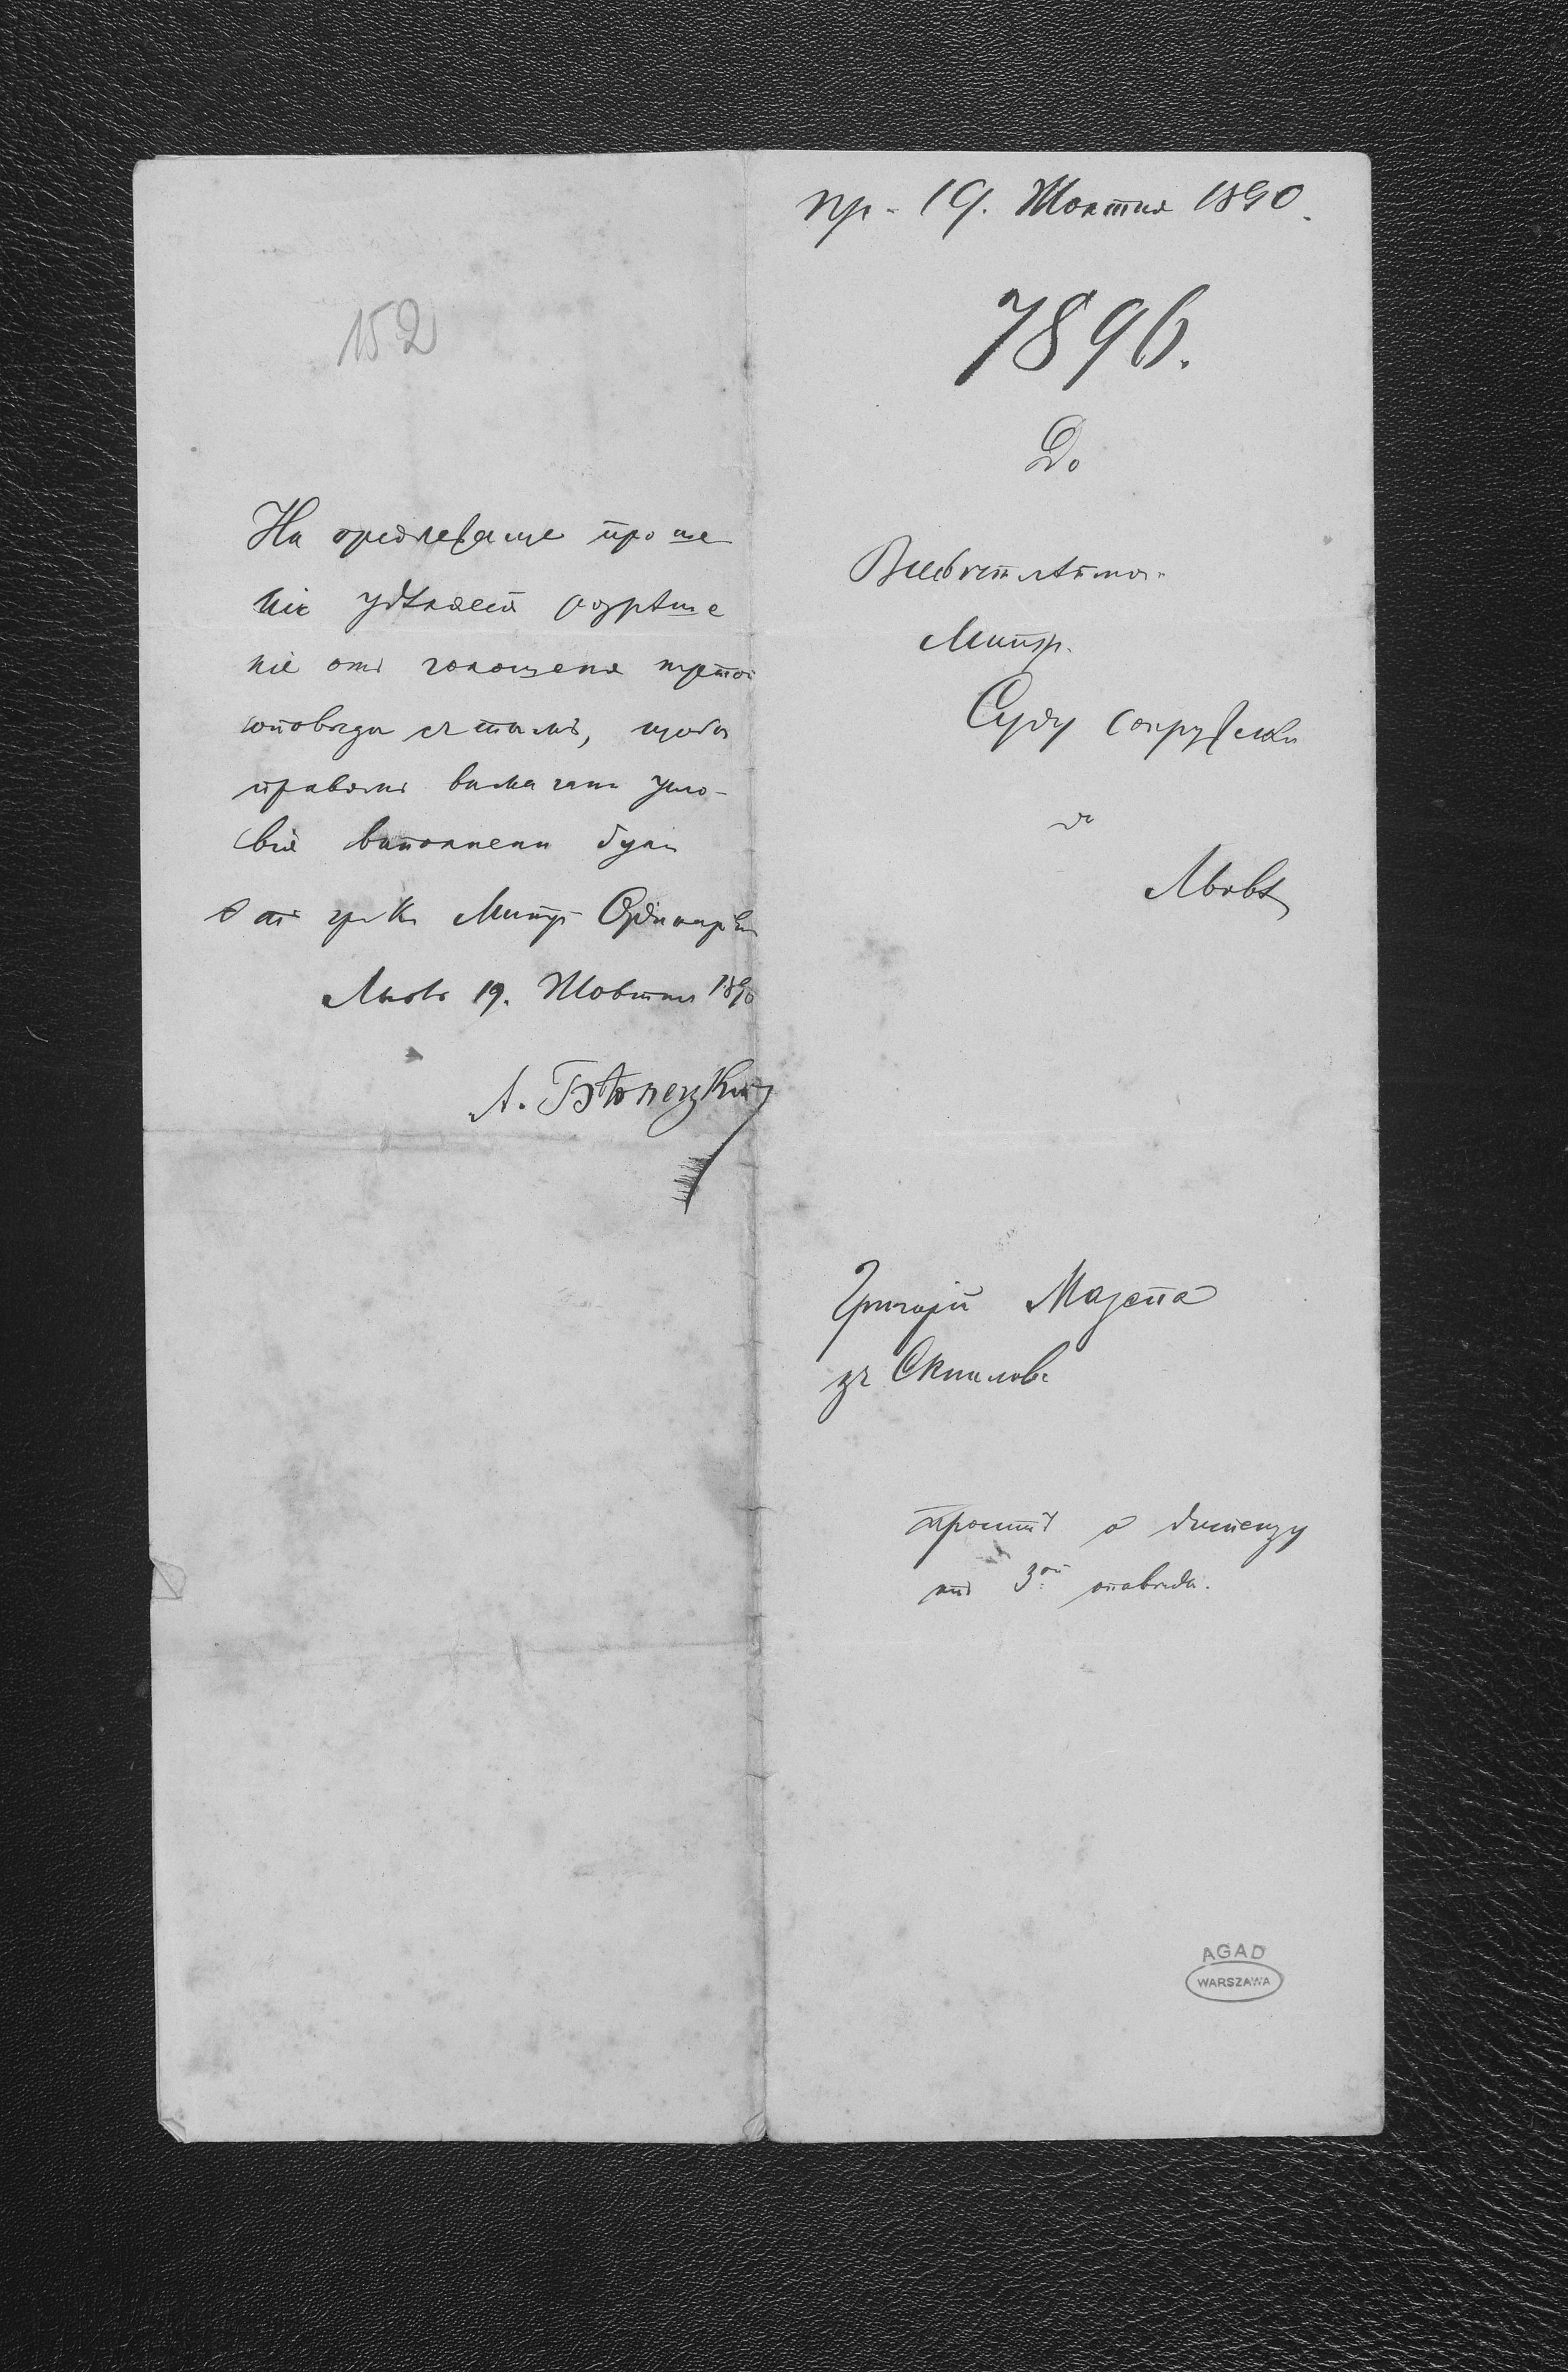 152
На предлежаще проше
ніє удѣляєся розрѣше
ніє отъ голошеня третои
оповѣди съ тымъ, щобы
правомъ вымагани усло-
вія выполнени були
Отъ гр. к. Митр. Ординаріи
Львовъ 19. Жовтня 1890
А. Бѣлецкій
пр. 19. Жовтня 1890.
7896.
До
Митр.
Суду супружеск
во
Львовѣ
Григорій Мазепа
зъ Скнилова
проситъ о диспензу
3ои оповѣди.
AGAD
WARSZAWA